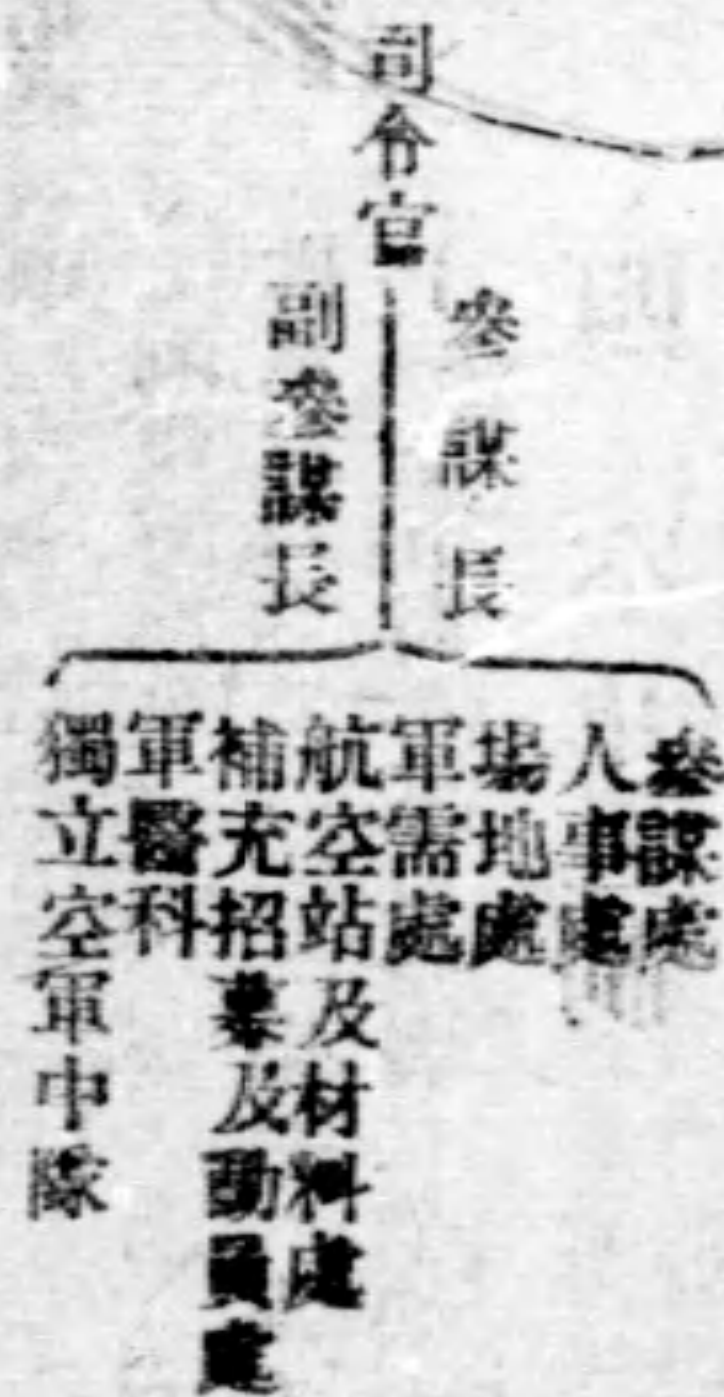 司令官
參謀長
副參謀長
參謀處
人事處
場地處
軍需處
航空站及材料處
補充招募及動員處
軍醫科
獨立空軍中隊